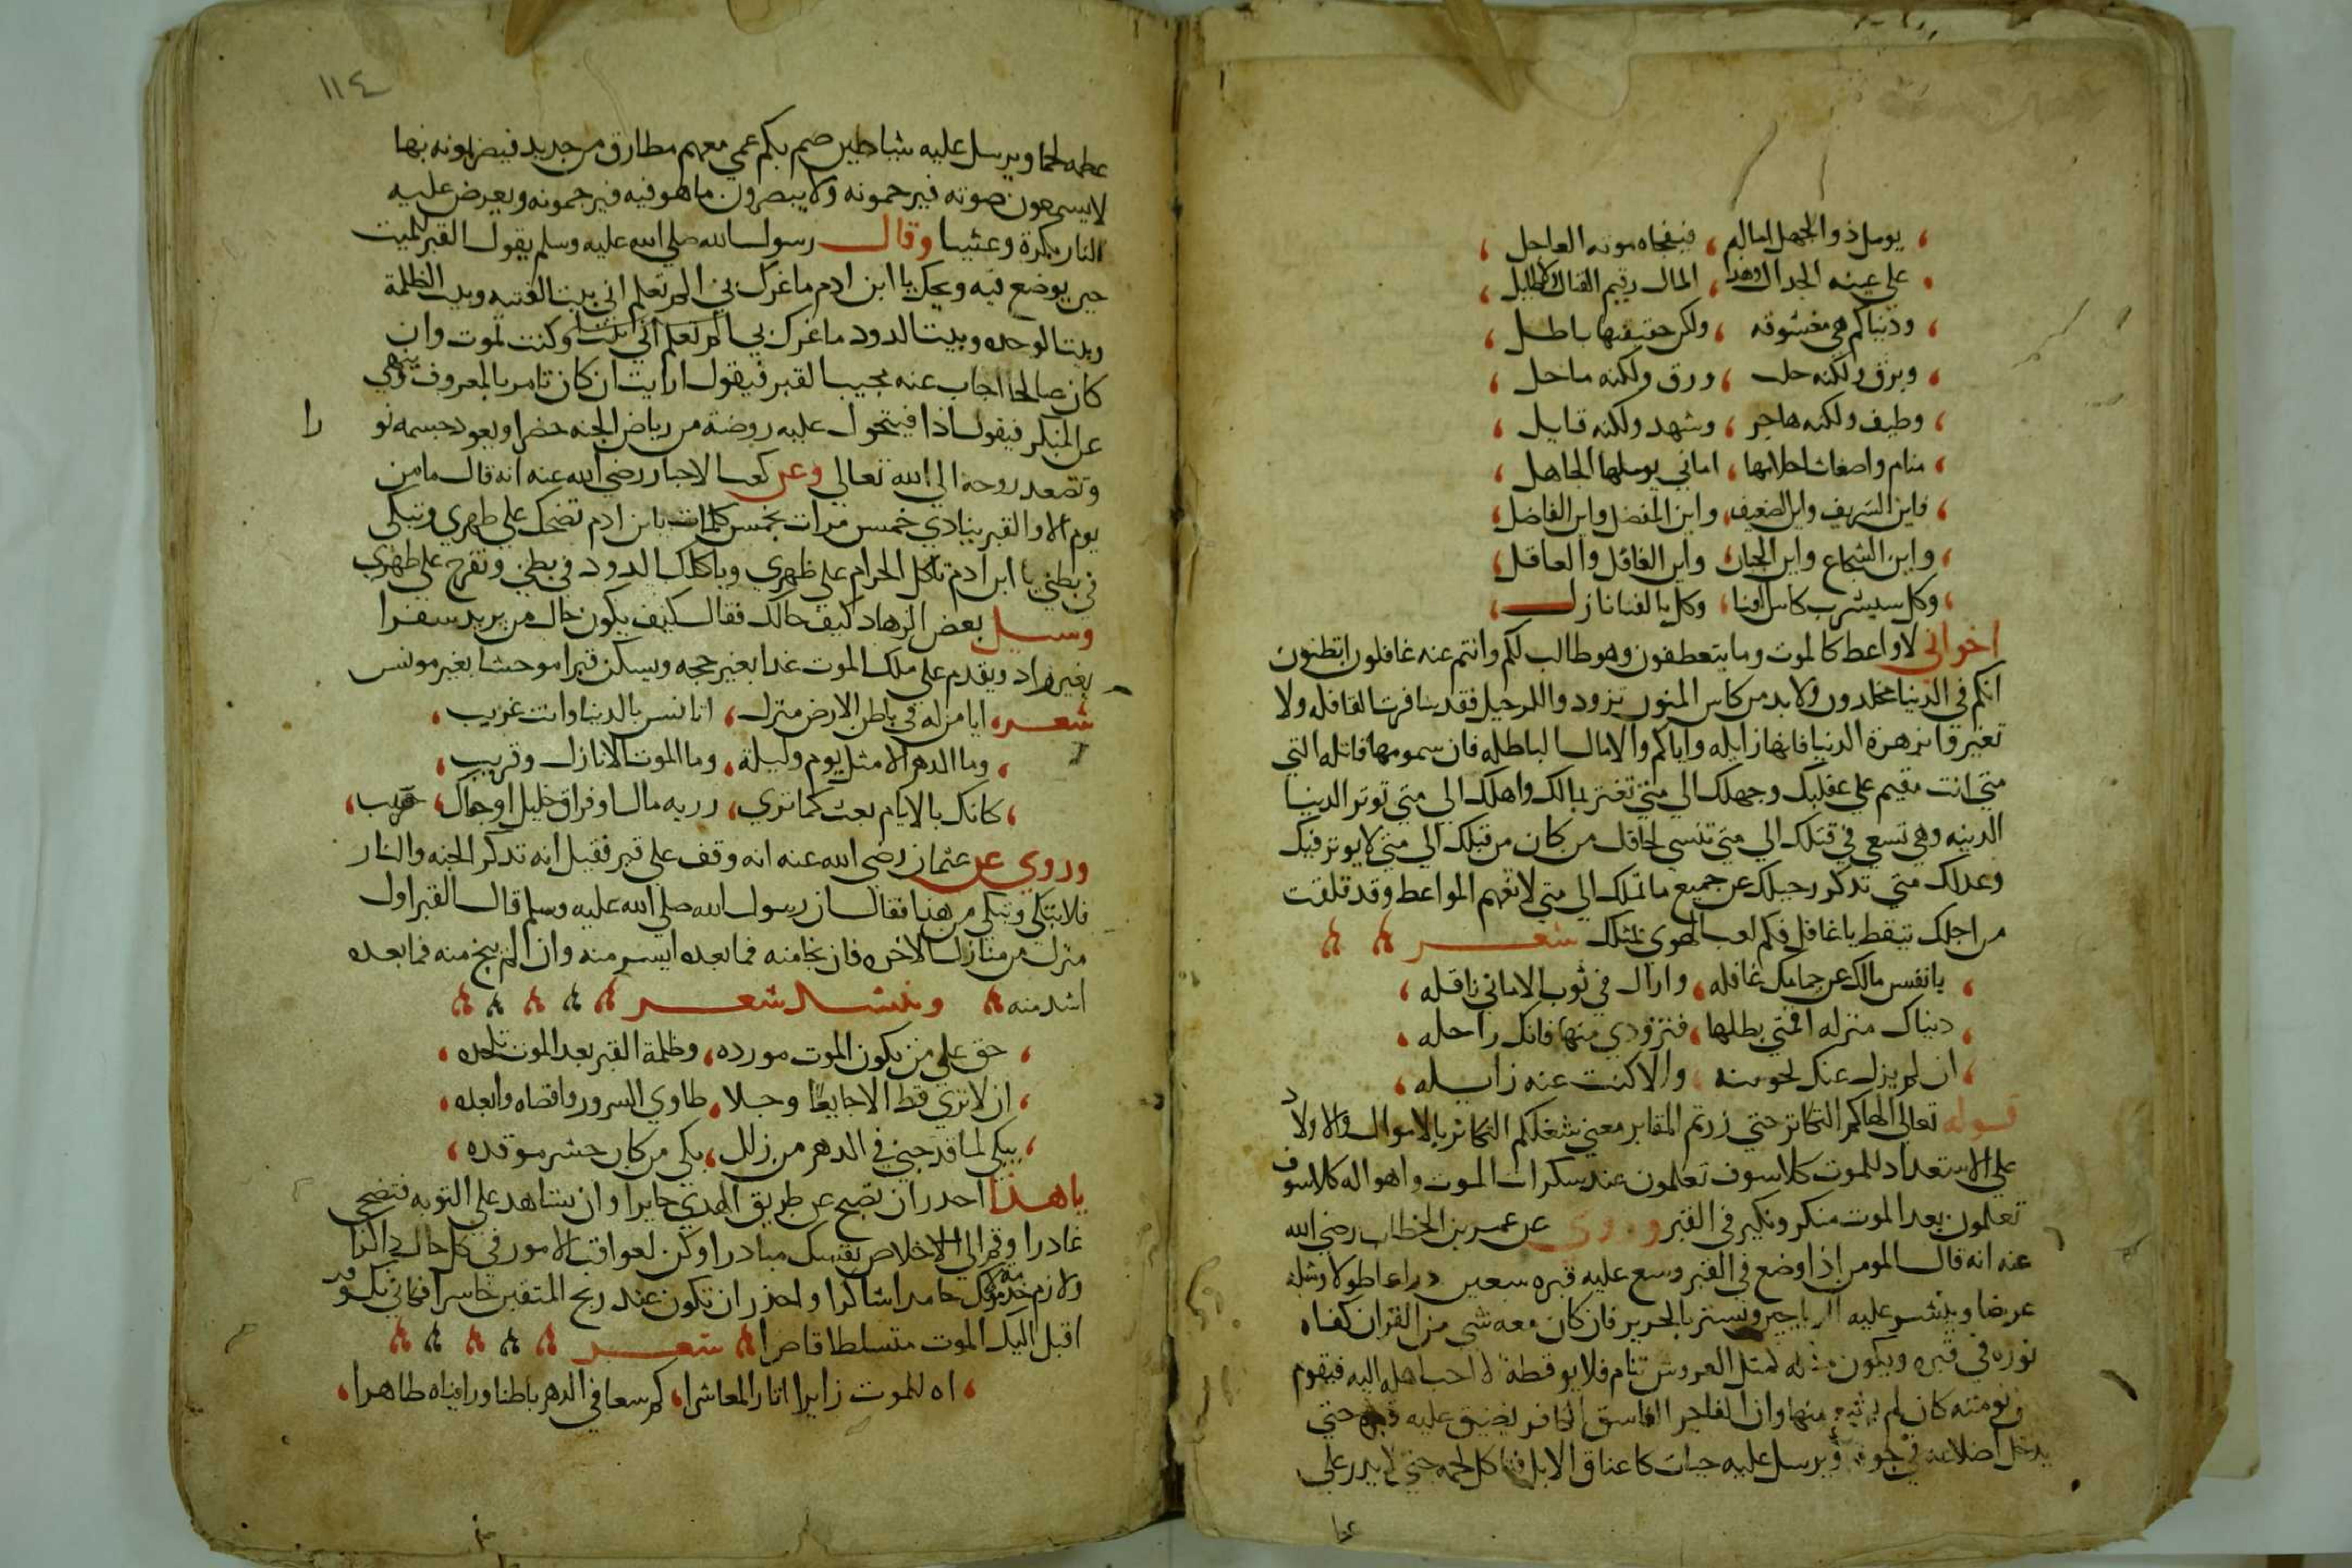 يومل ذو الجهل اماله، فيفجاه موته العاجل
ودنياكم هي معشوقه، ولكن حقيقتها باطل
وبرق ولكنه خلب، ورق ولكنه ماحل
وطيف ولكنه هاجر، وشهد ولكنه قاتل
منام واضغاث احلامها، اماني يوملها الجاهل
فاين الشريف واين الضعيف، واين المفضل واين الفاضل
واين الشجاع واين الجبان، واين الغافل والعاقل
وكل سيشرب كاس الفنا، وكل بالفنا نازل
اخواني لا واعظ كالموت وما يتعطفون وهو طالب لكم وانتم عنه غافلون اتظنون
انكم في الدنيا مخلدون ولابد من كاس المنون تزودوا للرحيل فقد سافرت القافله ولا
تغتروا بزهرة الدنيا فانها زايله واياكم والامال الباطله فان سمومها قاتله الي
متي انت مقيم علي غفلتك وجهلك الي متي تغتر بمالك واهلك الي متي توثر الدنيا
الدنيه وهي تسعي في قتلك الي متي تنسي لحاقك من كان من قبلك الي متي لا يوثر فيك
وعدلك متي تذكر رحيلك عن جميع مالك الي متي لا تفهم المواعظ وقد تلقت
من اجلك تيقظ يا غافل فكم لعب الهوي بمثلك شعر
يا نفس مالك عن حمامك غافله، واراك في ثوب الاماني رافله
دنياك منزله افتي بطلها، فتزودي منها فانك راحله
ان لم يزل عنك لحوسه، والا كنت عنه زايله
قوله تعالي الهاكم التكاثر حتي زرتم المقابر معني شغلكم التكاثر بالاموال والاولاد
علي الاستعداد للموت كلا سوف تعلمون عند سكرات الموت واهواله كلا سوف
تعلمون بعد الموت منكر ونكير في القبر وروي عن عمر بن الخطاب رضي الله
عنه انه قال المومن اذا وضع في القبر وسع عليه قبره سبعين دراعا طولا ومثله
عرضا وينشر عليه الرياحين ويستر بالحرير فان كان معه شي من القران كفاه
نوره في قبره ويكون مثله كمثل العروس تنام فلا يوقظه الا احب اهله اليه فيقوم
من نومته كان لم يشبع منها وان الفاجر الفاسق الكافر يضيق عليه قبره حتي
يدخل اضلاعه في جوفه ويرسل عليه حيات كاعناق الابل فتاكل لحمه حتي لا يذر علي
عظ
١١٤
عظمه لحما ويرسل عليه شياطين صم بكم عمي معهم مطارق من حديد فيضربونه بها
لا يسمعون صوته فيرحمونه ولا يبصرون ما هو فيه فيرحمونه ويعرض عليه
النار بكرة وعشيا وقال رسول الله صلي الله عليه وسلم يقول القبر للميت
حين يوضع فيه ويحك يا ابن ادم ما غرك بي الم تعلم اني بيت الفتنه وبيت الظلمة
وبيت الوحده وبيت الدود ما غرك بي الم تعلم اني بيت وكنت لموت وان
كان صالحا اجاب عنه مجيب القبر فيقول ارايت ان كان تامر بالمعروف وينهي
عن المنكر فيقول اذا فيتحول عليه روضة من رياض الجنه خضرا ويعود جسمه نو
را
وتصعد روحه الي الله تعالي وعن كعب الاحبار رضي الله عنه انه قال ما من
يوم الا والقبر ينادي خمس مرات بخمس كلمات يابن ادم تضحك علي ظهري وتبكي
في بطني يا ابن ادم تاكل الحرام علي ظهري وياكلك الدود في بطني وتفرح علي ظهري
وسيل بعض الزهاد كيف حالك فقال كيف يكون حال من يريد سفرا
بغير زاد ويقدم علي ملك الموت غدا بغير حجه ويسكن قبرا موحشا بغير مونس
شعر، ايا من له في باطن الارض منزل، اتانس بالدنيا وانت غريب
وما الدهر الا مثل يوم وليلة، وما الموت الا نازل وقريب
كانك بالايام بعت كما تري، رريه مال او فراق خليل او حال، حبيب
وروي عن عثمان رضي الله عنه انه وقف علي قبر فقيل انه تذكر الجنه والنار
فلا تبكي وتبكي من هذا فقال ان رسول الله صلي الله عليه وسلم قال القبر اول
منزل من منازل الاخره فان نجا منه فما بعده ايسر منه وان لم ينج منه فما بعده
اشد منه وينشد شعر
حق علي من يكون الموت مورده، وظلمة القبر بعد الموت تلحده
ان لا تري قط الا جايعا وجلا، طاوي السرور واقصاه وابعده
يبكي لما قد جني في الدهر من زلل، بكي من كان حشر موقده
يا هذا احذر ان تصبح عن طريق الهدي حايرا وان تشاهد علي التوبه فتضحي
غادرا وقم الي الاخلاص بنفسك مبادرا وكن لعواقب الامور في كل حال ذاكرا
ولازم خدمة مولاك حامدا شاكرا واحذر ان تكون عند ربح المتقين خاسرا فكاني بك وقد
اقبل اليك الموت متسلطا قاصرا شعر
اه للموت زايرا اثار المعاشرا، كم سعا في الدهر باطنا ورايناه ظاهرا